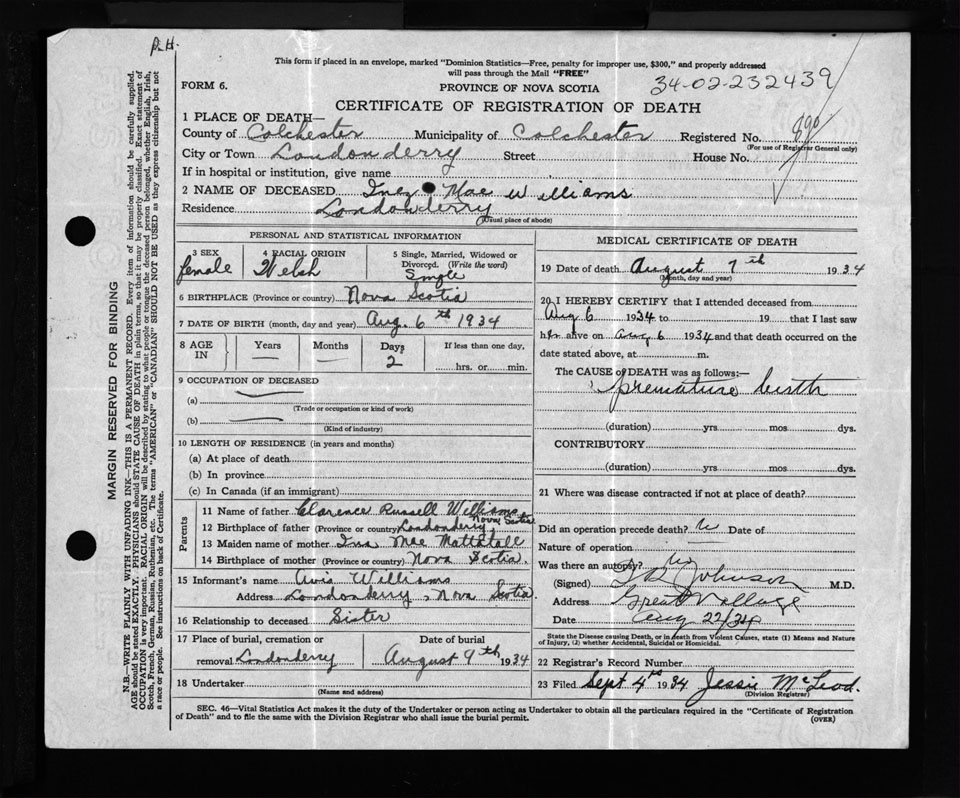 P.H.
This form if placed in an envelope, marked "Dominion Statistics—Free, penalty for improper use, $300," and properly addressed
will pass through the Mail "FREE"
34-02-232439
FORM 6.
PROVINCE OF NOVA SCOTIA
CERTIFICATE OF REGISTRATION OF DEATH
1 PLACE OF DEATH—
County of Colchester Municipality of Colchester Registered No. 890
(For use of Registrar General only)
City or Town Londonderry Street House No.
If in hospital or institution, give name
2 NAME OF DECEASED Inez Mae Williams
Residence Londonderry
(Usual place of abode)
PERSONAL AND STATISTICAL INFORMATION
3 SEX female
4 RACIAL ORIGIN Welsh
5 Single, Married, Widowed or Divorced. (Write the word) Single
6 BIRTHPLACE (Province or country) Nova Scotia
7 DATE OF BIRTH (month, day and year) Aug. 6th 1934
8 AGE IN Years Months Days If less than one day,
2 hrs. or min.
9 OCCUPATION OF DECEASED
(a)
(Trade or occupation or kind of work)
(b)
(Kind of industry)
10 LENGTH OF RESIDENCE (in years and months)
(a) At place of death
(b) In province
(c) In Canada (if an immigrant)
Parents
11 Name of father Clarence Russell Williams
12 Birthplace of father (Province or country) Londonderry, Nova Scotia
13 Maiden name of mother Ina Mae Mattatall
14 Birthplace of mother (Province or country) Nova Scotia.
15 Informant's name Avis Williams
Address Londonderry, Nova Scotia
16 Relationship to deceased Sister
17 Place of burial, cremation or removal Londonderry
Date of burial August 9th 1934
18 Undertaker
(Name and address)
MEDICAL CERTIFICATE OF DEATH
19 Date of death August 7th 1934
(Month, day and year)
20 I HEREBY CERTIFY that I attended deceased from
Aug 6 1934 to 19 that I last saw
her alive on Aug 6 1934 and that death occurred on the
date stated above, at m.
The CAUSE of DEATH was as follows:—
premature birth
(duration) yrs mos dys.
CONTRIBUTORY
(duration) yrs mos dys.
21 Where was disease contracted if not at place of death?
Did an operation precede death? Date of
Nature of operation
Was there an autopsy?
(Signed) Johnson M.D.
Address Great Village
Date Aug 22/34
State the Disease causing Death, or in death from Violent Causes, state (1) Means and Nature
of Injury, (2) whether Accidental, Suicidal or Homicidal.
22 Registrar's Record Number
23 Filed Sept 4th 1934 Jessie McLeod.
(Division Registrar)
SEC. 46—Vital Statistics Act makes it the duty of the Undertaker or person acting as Undertaker to obtain all the particulars required in the "Certificate of Registration
of Death" and to file the same with the Division Registrar who shall issue the burial permit.
(OVER)
MARGIN RESERVED FOR BINDING
N.B.—WRITE PLAINLY WITH UNFADING INK—THIS IS A PERMANENT RECORD. Every item of information should be carefully supplied.
AGE should be stated EXACTLY. PHYSICIANS should STATE CAUSE OF DEATH in plain terms, so that it may be properly classified. Exact statement of
OCCUPATION is very important. RACIAL ORIGIN will be described by stating to what people or tongue the deceased person belonged, whether English, Irish,
Scotch, French, German, Russian, Ruthenian, etc. The terms "AMERICAN" or "CANADIAN" SHOULD NOT BE USED as they express citizenship but not
a race or people. See instructions on back of Certificate.